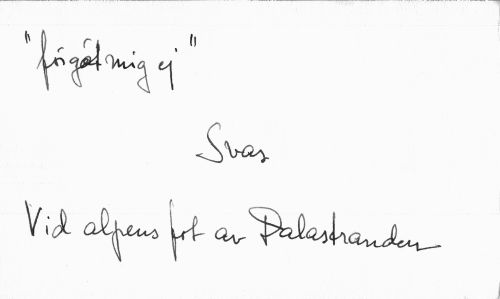 "förgät mig ej"
Svar
Vid alpens fot av Dalastranden